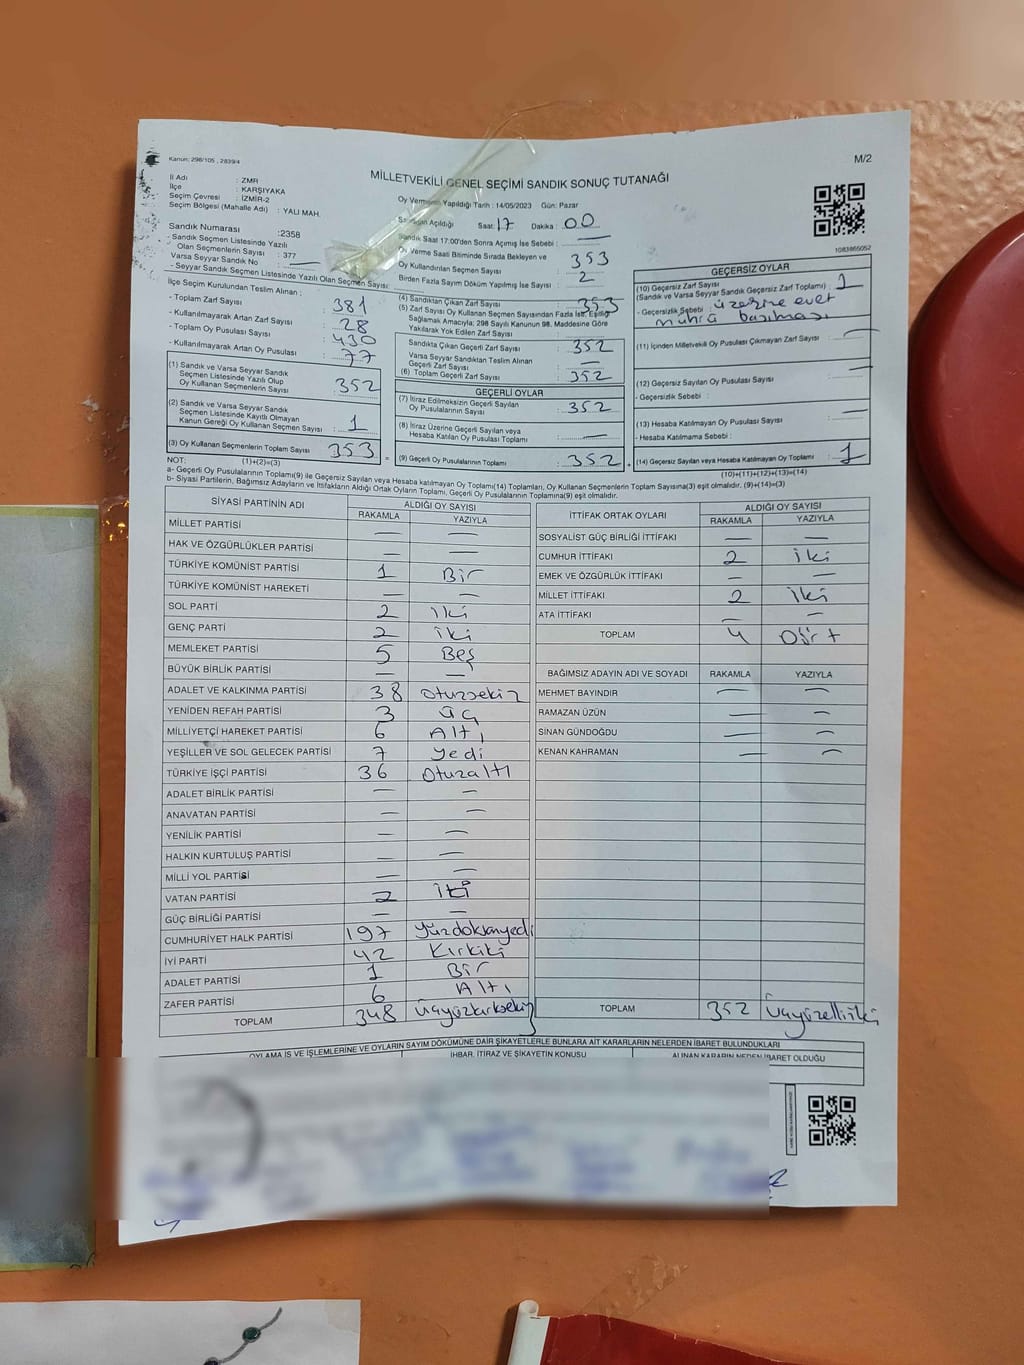 Kanun: 298/105 , 2839/4
M/2
MİLLETVEKİLİ GENEL SEÇİMİ SANDIK SONUÇ TUTANAĞI
İl Adı : ZMR
İlçe : KARŞIYAKA
Seçim Çevresi : İZMİR-2
Seçim Bölgesi (Mahalle Adı) : YALI MAH.
Sandık Numarası :2358
- Sandık Seçmen Listesinde Yazılı
Olan Seçmenlerin Sayısı : 377
Varsa Seyyar Sandık No :
- Seyyar Sandık Seçmen Listesinde Yazılı Olan Seçmen Sayısı:
İlçe Seçim Kurulundan Teslim Alınan :
- Toplam Zarf Sayısı : 381
- Kullanılmayarak Artan Zarf Sayısı : 28
- Toplam Oy Pusulası Sayısı : 430
- Kullanılmayarak Artan Oy Pusulası : 77
(1) Sandık ve Varsa Seyyar Sandık
Seçmen Listesinde Yazılı Olup
Oy Kullanan Seçmenlerin Sayısı : 352
(2) Sandık ve Varsa Seyyar Sandık
Seçmen Listesinde Kayıtlı Olmayan
Kanun Gereği Oy Kullanan Seçmen Sayısı : 1
(3) Oy Kullanan Seçmenlerin Toplam Sayısı : 353
Oy Vermenin Yapıldığı Tarih : 14/05/2023 Gün: Pazar
Açıldığı Saat: 17 Dakika : 00
Sandık Saat 17:00'den Sonra Açımış İse Sebebi :
Oy Verme Saati Bitiminde Sırada Bekleyen ve
Oy Kullandırılan Seçmen Sayısı : 353
Birden Fazla Sayım Döküm Yapılmış İse Sayısı : 2
(4) Sandıktan Çıkan Zarf Sayısı : 353
(5) Zarf Sayısı Oy Kullanan Seçmen Sayısından Fazla İse, Eşitliği
Sağlamak Amacıyla; 298 Sayılı Kanunun 98. Maddesine Göre
Yakılarak Yok Edilen Zarf Sayısı :
Sandıkta Çıkan Geçerli Zarf Sayısı : 352
Varsa Seyyar Sandıktan Teslim Alınan
Geçerli Zarf Sayısı : —
(6) Toplam Geçerli Zarf Sayısı : 352
GEÇERLİ OYLAR
(7) İtiraz Edilmeksizin Geçerli Sayılan
Oy Pusulalarının Sayısı : 352
(8) İtiraz Üzerine Geçerli Sayılan veya
Hesaba Katılan Oy Pusulası Toplamı : —
(9) Geçerli Oy Pusulalarının Toplamı : 352
1083865052
GEÇERSİZ OYLAR
(10) Geçersiz Zarf Sayısı
(Sandık ve Varsa Seyyar Sandık Geçersiz Zarf Toplamı) : 1
- Geçersizlik Sebebi : üzerine evet
mührü basılması
(11) İçinden Milletvekili Oy Pusulası Çıkmayan Zarf Sayısı : —
(12) Geçersiz Sayılan Oy Pusulası Sayısı : —
- Geçersizlik Sebebi :
(13) Hesaba Katılmayan Oy Pusulası Sayısı : —
- Hesaba Katılmama Sebebi :
(14) Geçersiz Sayılan veya Hesaba Katılmayan Oy Toplamı : 1
NOT: (1)+(2)=(3)
(10)+(11)+(12)+(13)=(14)
a- Geçerli Oy Pusulalarının Toplamı(9) ile Geçersiz Sayılan veya Hesaba katılmayan Oy Toplamı(14) Toplamları, Oy Kullanan Seçmenlerin Toplam Sayısına(3) eşit olmalıdır. (9)+(14)=(3)
b- Siyasi Partilerin, Bağımsız Adayların ve İttifakların Aldığı Ortak Oyların Toplamı, Geçerli Oy Pusulalarının Toplamına(9) eşit olmalıdır.
SİYASİ PARTİNİN ADI ALDIĞI OY SAYISI
RAKAMLA YAZIYLA
MİLLET PARTİSİ — —
HAK VE ÖZGÜRLÜKLER PARTİSİ — —
TÜRKİYE KOMÜNİST PARTİSİ 1 Bir
TÜRKİYE KOMÜNİST HAREKETİ — —
SOL PARTİ 2 iki
GENÇ PARTİ 2 iki
MEMLEKET PARTİSİ 5 Beş
BÜYÜK BİRLİK PARTİSİ — —
ADALET VE KALKINMA PARTİSİ 38 otuzsekiz
YENİDEN REFAH PARTİSİ 3 üç
MİLLİYETÇİ HAREKET PARTİSİ 6 Altı
YEŞİLLER VE SOL GELECEK PARTİSİ 7 yedi
TÜRKİYE İŞÇİ PARTİSİ 36 otuzaltı
ADALET BİRLİK PARTİSİ — —
ANAVATAN PARTİSİ — —
YENİLİK PARTİSİ — —
HALKIN KURTULUŞ PARTİSİ — —
MİLLİ YOL PARTİSİ — —
VATAN PARTİSİ 2 iki
GÜÇ BİRLİĞİ PARTİSİ — —
CUMHURİYET HALK PARTİSİ 197 yüzdoksanyedi
İYİ PARTİ 42 Kırkiki
ADALET PARTİSİ 1 Bir
ZAFER PARTİSİ 6 Altı
TOPLAM 348 üçyüzkırksekiz
İTTİFAK ORTAK OYLARI ALDIĞI OY SAYISI
RAKAMLA YAZIYLA
SOSYALİST GÜÇ BİRLİĞİ İTTİFAKI — —
CUMHUR İTTİFAKI 2 iki
EMEK VE ÖZGÜRLÜK İTTİFAKI — —
MİLLET İTTİFAKI 2 iki
ATA İTTİFAKI — —
TOPLAM 4 Dört
BAĞIMSIZ ADAYIN ADI VE SOYADI RAKAMLA YAZIYLA
MEHMET BAYINDIR — —
RAMAZAN ÜZÜN — —
SİNAN GÜNDOĞDU — —
KENAN KAHRAMAN — —
TOPLAM 352 üçyüzelliiki
OYLAMA İŞ VE İŞLEMLERİNE VE OYLARIN SAYIM DÖKÜMÜNE DAİR ŞİKAYETLERLE BUNLARA AİT KARARLARIN NELERDEN İBARET BULUNDUKLARI
İHBAR, İTİRAZ VE ŞİKAYETİN KONUSU
ALINAN KARARIN NEDEN İBARET OLDUĞU